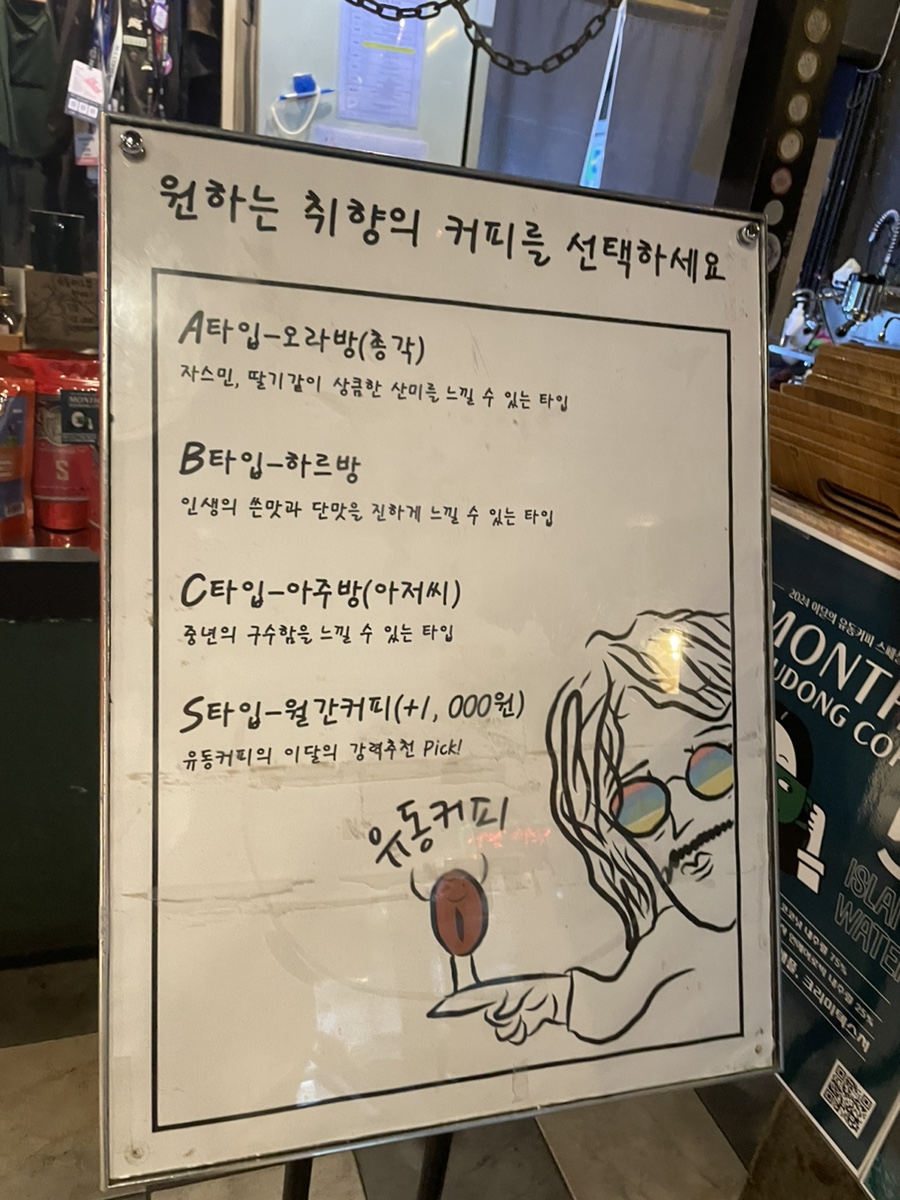 원하는 취향의 커피를 선택하세요
A타입-오라방(총각)
자스민, 딸기같이 상큼한 산미를 느낄 수 있는 타입
B타입-하르방
인생의 쓴맛과 단맛을 진하게 느낄 수 있는 타입
C타입-아주방(아저씨)
중년의 구수함을 느낄 수 있는 타입
S타입-월간커피(+1, 000원)
유동커피의 이달의 강력추천 Pick!
유동커피
S
2024 이달의 유동커피
MONTH
UDONG CO
ISLA
WATE